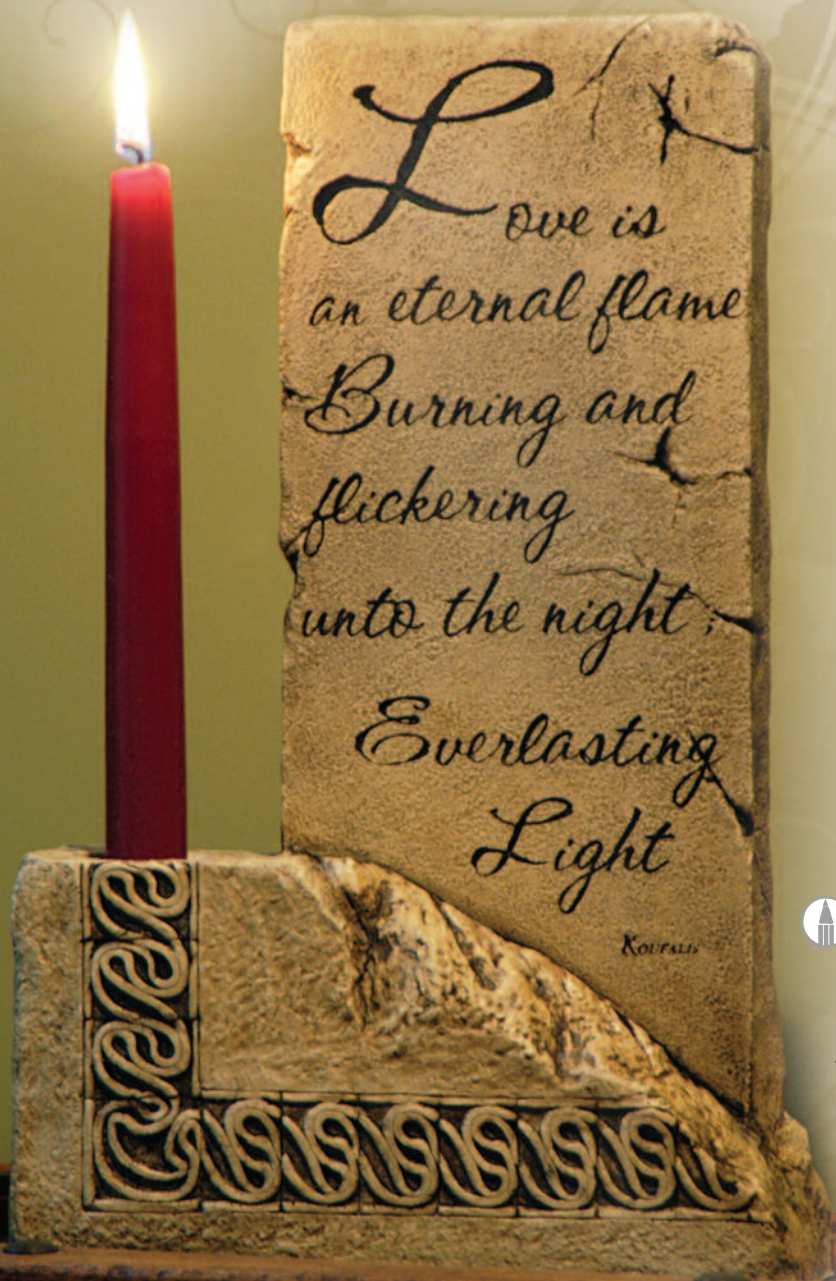 Love is
an eternal flame
Burning and
flickering
unto the night;
Everlasting
Light
KOUFALIS